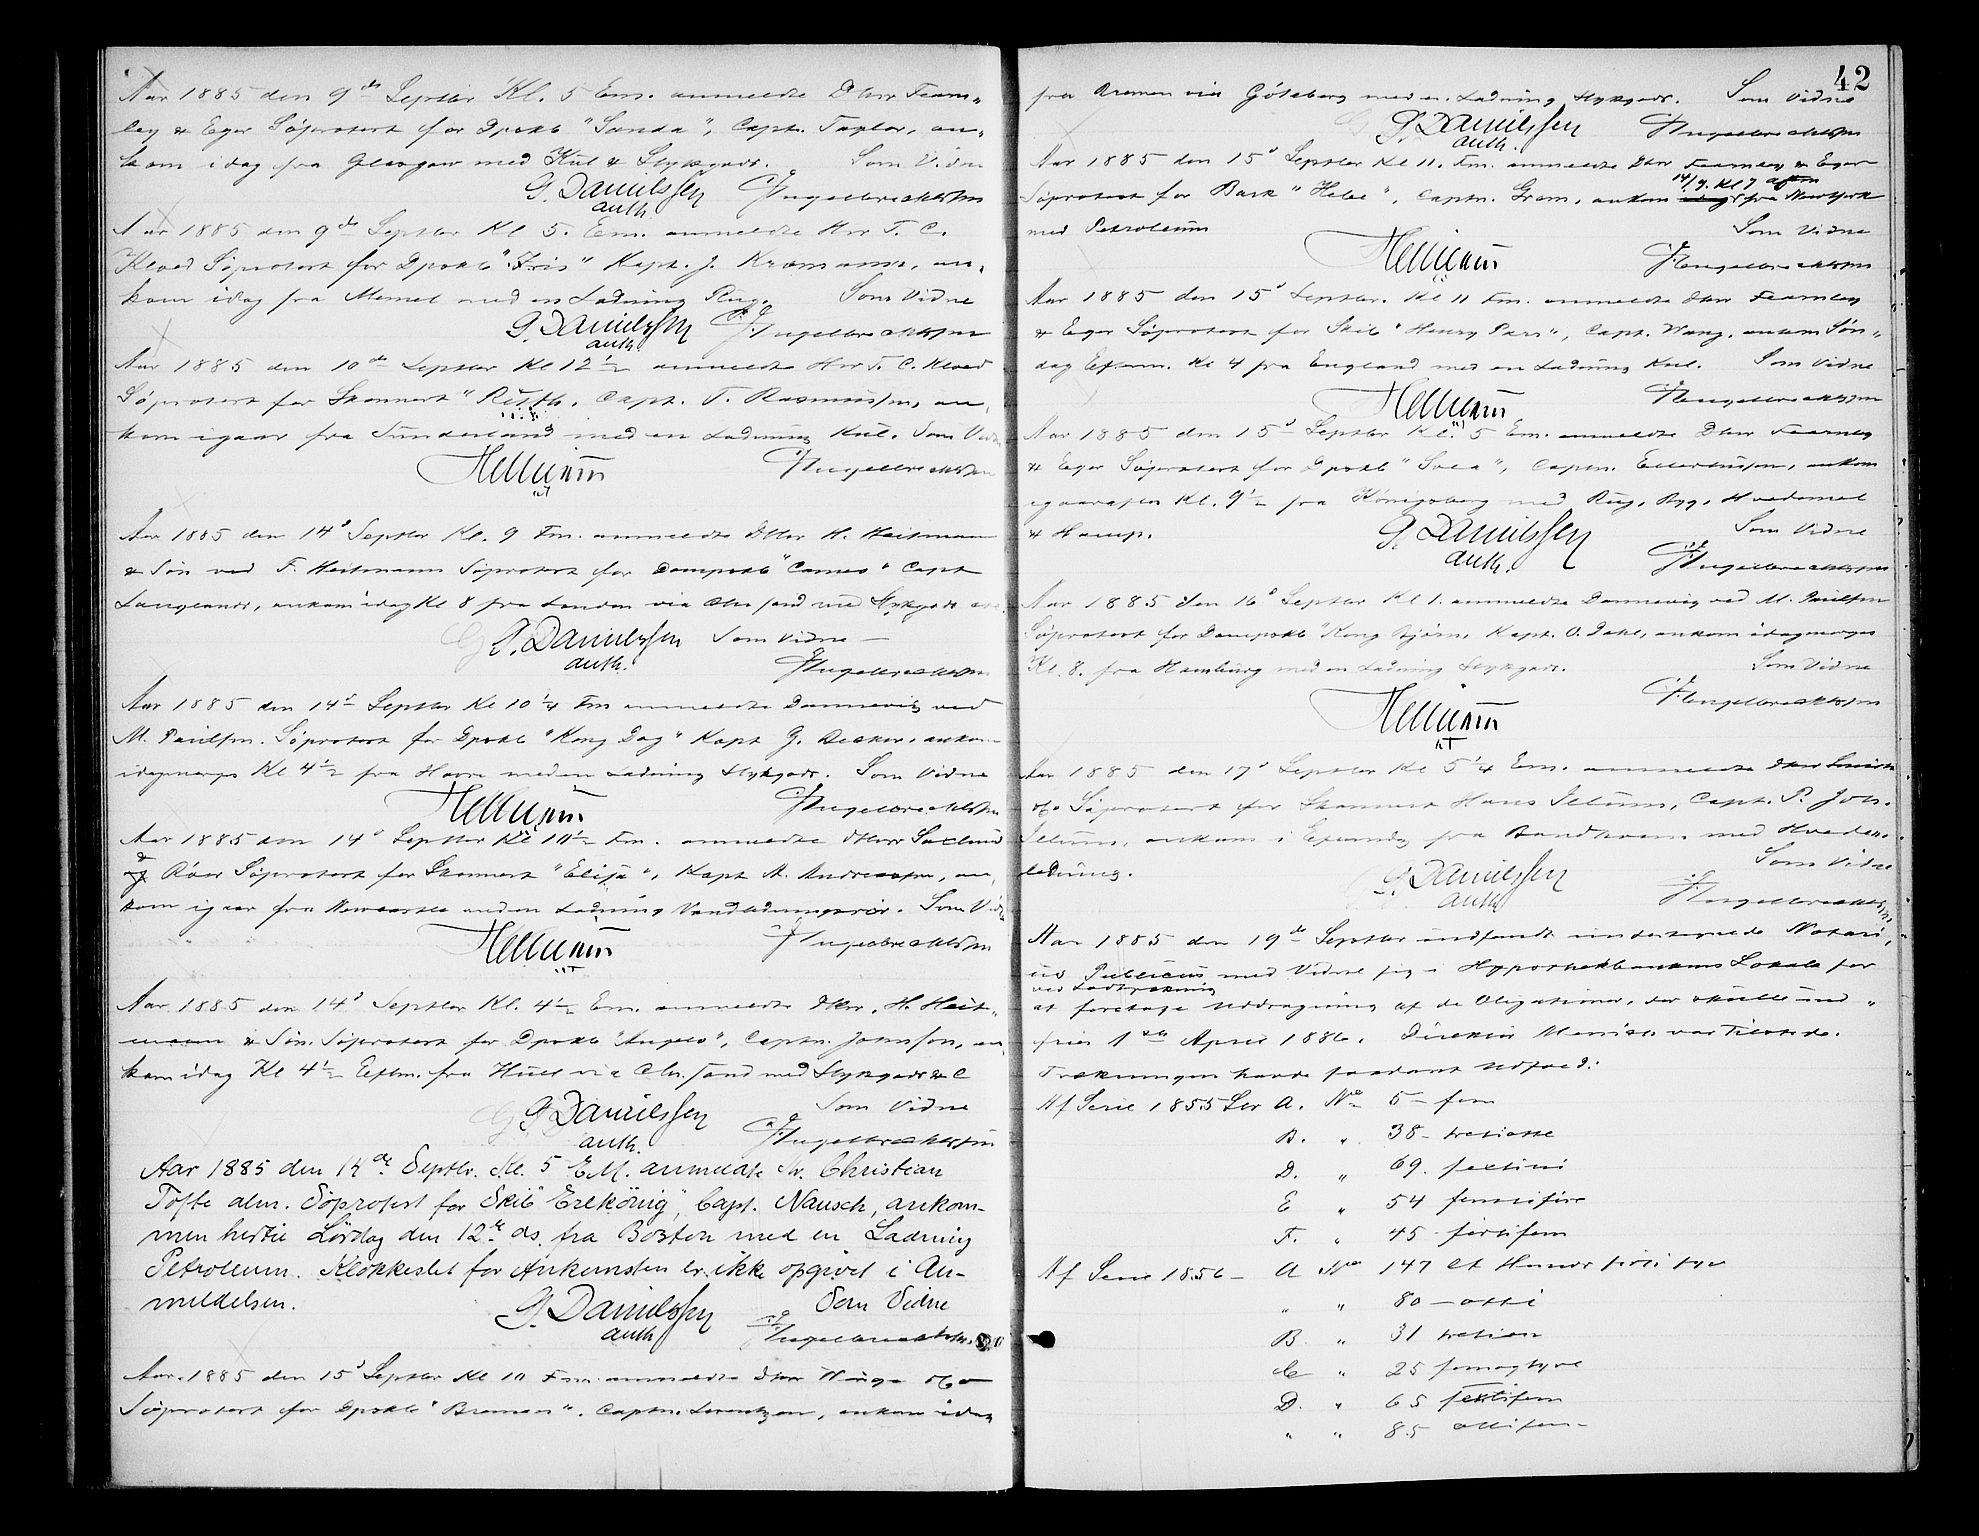 Aar 1885 den 9de Septbr Kl. 5 Em. anmeldte Dhrr Fearn-
ley & Eger Søprotest for Dpskb "Sanda", Capt. Taylor, an-
kom idag fra Glasgow med Kul & Stykgods. Som Vidne
G. Danielssen
auth. J. Engelbrechtsen
Aar 1885 den 9de Septbr Kl 5. Em. anmeldte Hrr T. C.
Kloed Søprotest for Dpskb "Iris" Kapt. J. Kromann, an-
kom idag fra Memel med en Ladning Rug. Som Vidne
G. Danielssen
auth. J. Engelbrechtsen
Aar 1885 den 10de Septbr Kl 12½ anmeldte Hrr T. C. Kloed
Søprotest for Skonnert "Ruth, Capt. T. Rasmussen, an-
kom igaar fra Sunderland med en Ladning Kul. Som Vidne
J. Engelbrechtsen
Aar 1885 den 14d Septbr Kl. 9 Fm. anmeldte Dhrr H. Heitmann
& Søn ved F. Heitmann Søprotest for Dampskb "Cameo" Capt
Langlands, ankom idag Kl 8 fra London via Chr.sand med Stykgods
G. Danielssen Som Vidne
auth. J. Engelbrechtsen
Aar 1885 den 14d Septbr Kl 10¼ Fm anmeldte Dannevig ved
M. Paulsen. Søprotest for Dpskb "Kong Dag" Kapt G. Becker, ankom
idagmorges Kl 4½ fra Havre med en Ladning Stykgods. Som Vidne
J. Engelbrechtsen
Aar 1885 den 14d Septbr Kl 10½ Fm. anmeldte Dhrr Saxlund
& Røer Søprotest for Skonnert "Elisa", Kapt M. Andreasen, an-
kom igaar fra Newcastle med en Ladning Vandledningsrør. Som Vidne
J. Engelbrechtsen
Aar 1885 den 14d Septbr Kl. 4½ Em. anmeldte Dhrr. H. Heit-
mann & Søn. Søprotest for Dpskb "Angelo", Captn. Johnson, an-
kom idag Kl 4½ Eftm. fra Hull via Chr.sand med Stykgods & C
G. Danielssen Som Vidne
auth. J. Engelbrechtsen
Aar 1885 den 14de Septbr. Kl. 5 EM. anmeldte Hr. Christian
Tofte alm. Søprotest for Skib "Erlkönig", Capt. Nausch, ankom-
men hertil Lördag den 12te ds. fra Boston med en Ladning
Petroleum. Klokkeslet for Ankomsten er ikke opgivet i An-
meldelsen. Som Vidne
G. Danielssen
auth J. Engelbrechtsen
Aar. 1885 den 15d Septbr Kl 10 Fm anmeldte Dhrr Winge & Co
Søprotest for Dpskb "Bremen". Captn. Lorentzen, ankom idag
42
fra Bremen via Göteborg med en Ladning Stykgods. Som Vidne
G. Danielssen
auth. J. Engelbrechtsen
Aar 1885 den 15d Septbr Kl 11. Fm. anmeldte Dhrr Fearnley & Eger
14/9. Kl 7 aften
Søprotest for Bark "Hebe", Captn. Gram, ankom idag fra Newyork
med Petroleum Som Vidne
J. Engelbrechtsen
Aar 1885 den 15d Septbr. Kl 11 Fm. anmeldte Dhrr Fearnley
& Eger Søprotest for Skib "Henry Pars", Capt. Wang, ankom Søn-
dag Efterm. Kl 4 fra England med en Ladning Kul. Som Vidne
J. Engelbrechtsen
Aar 1885 den 15d Septbr Kl. 5 Em. anmeldte Dhrr Fearnley
& Eger Søprotest for Dpskb "Svea", Captn. Ellertsen, ankom
igaaraftes Kl. 9½ fra Königsberg med Rug, Byg, Hvedemel
& Hamp. Som Vidne
G. Danielssen
auth. J. Engelbrechtsen
Aar 1885 den 16d Septbr Kl 1. anmeldte Dannevig ved M. Paulsen
Søprotest for Dampskb "Kong Bjørn, Kapt. O. Dahl, ankom idagmorges
Kl. 8. fra Hamburg med en Ladning Stykgods. Som Vidne
J. Engelbrechtsen
Aar 1885 den 17d Septbr Kl 5¼ Em. anmeldte Dhrr
& Co Søprotest for Skonnert Hans Ielum, Capt. P. Joh.
Ielum, ankom i Eftermdg fra Bandholm med Hvede-
ladning. Som Vidne
G. Danielssen
auth J. Engelbrechtsen
Aar 1885 den 19de Septbr indfandt undertegnede Notari-
us Publicus med Vidne sig i Hypothekbankens Lokale for
ved Lodtrækning
at foretage Uddragning af de Obligationer, der skulle ind-
fries 1ste April 1886. Direktør var tilstede.
Trækningen havde saadant Udfald:
Af Serie 1855 Ltr A. No 5 - fem
B. " 38 - trettiotte
D. " 69. sextini
E " 54 femtifire
F. " 45 førtifem
Af Serie 1856 - A No 147 Et Hundr førtisyv
" " 80 - otti
B " 31 trettien
C " 25 femogtyve
D. " 65 sextifem
" " 85 ottifem -